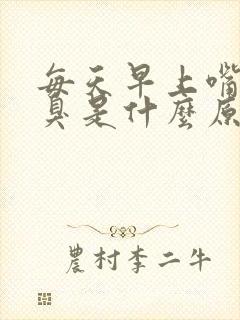 每天早上嘴
臭是什麼原
農村李二牛